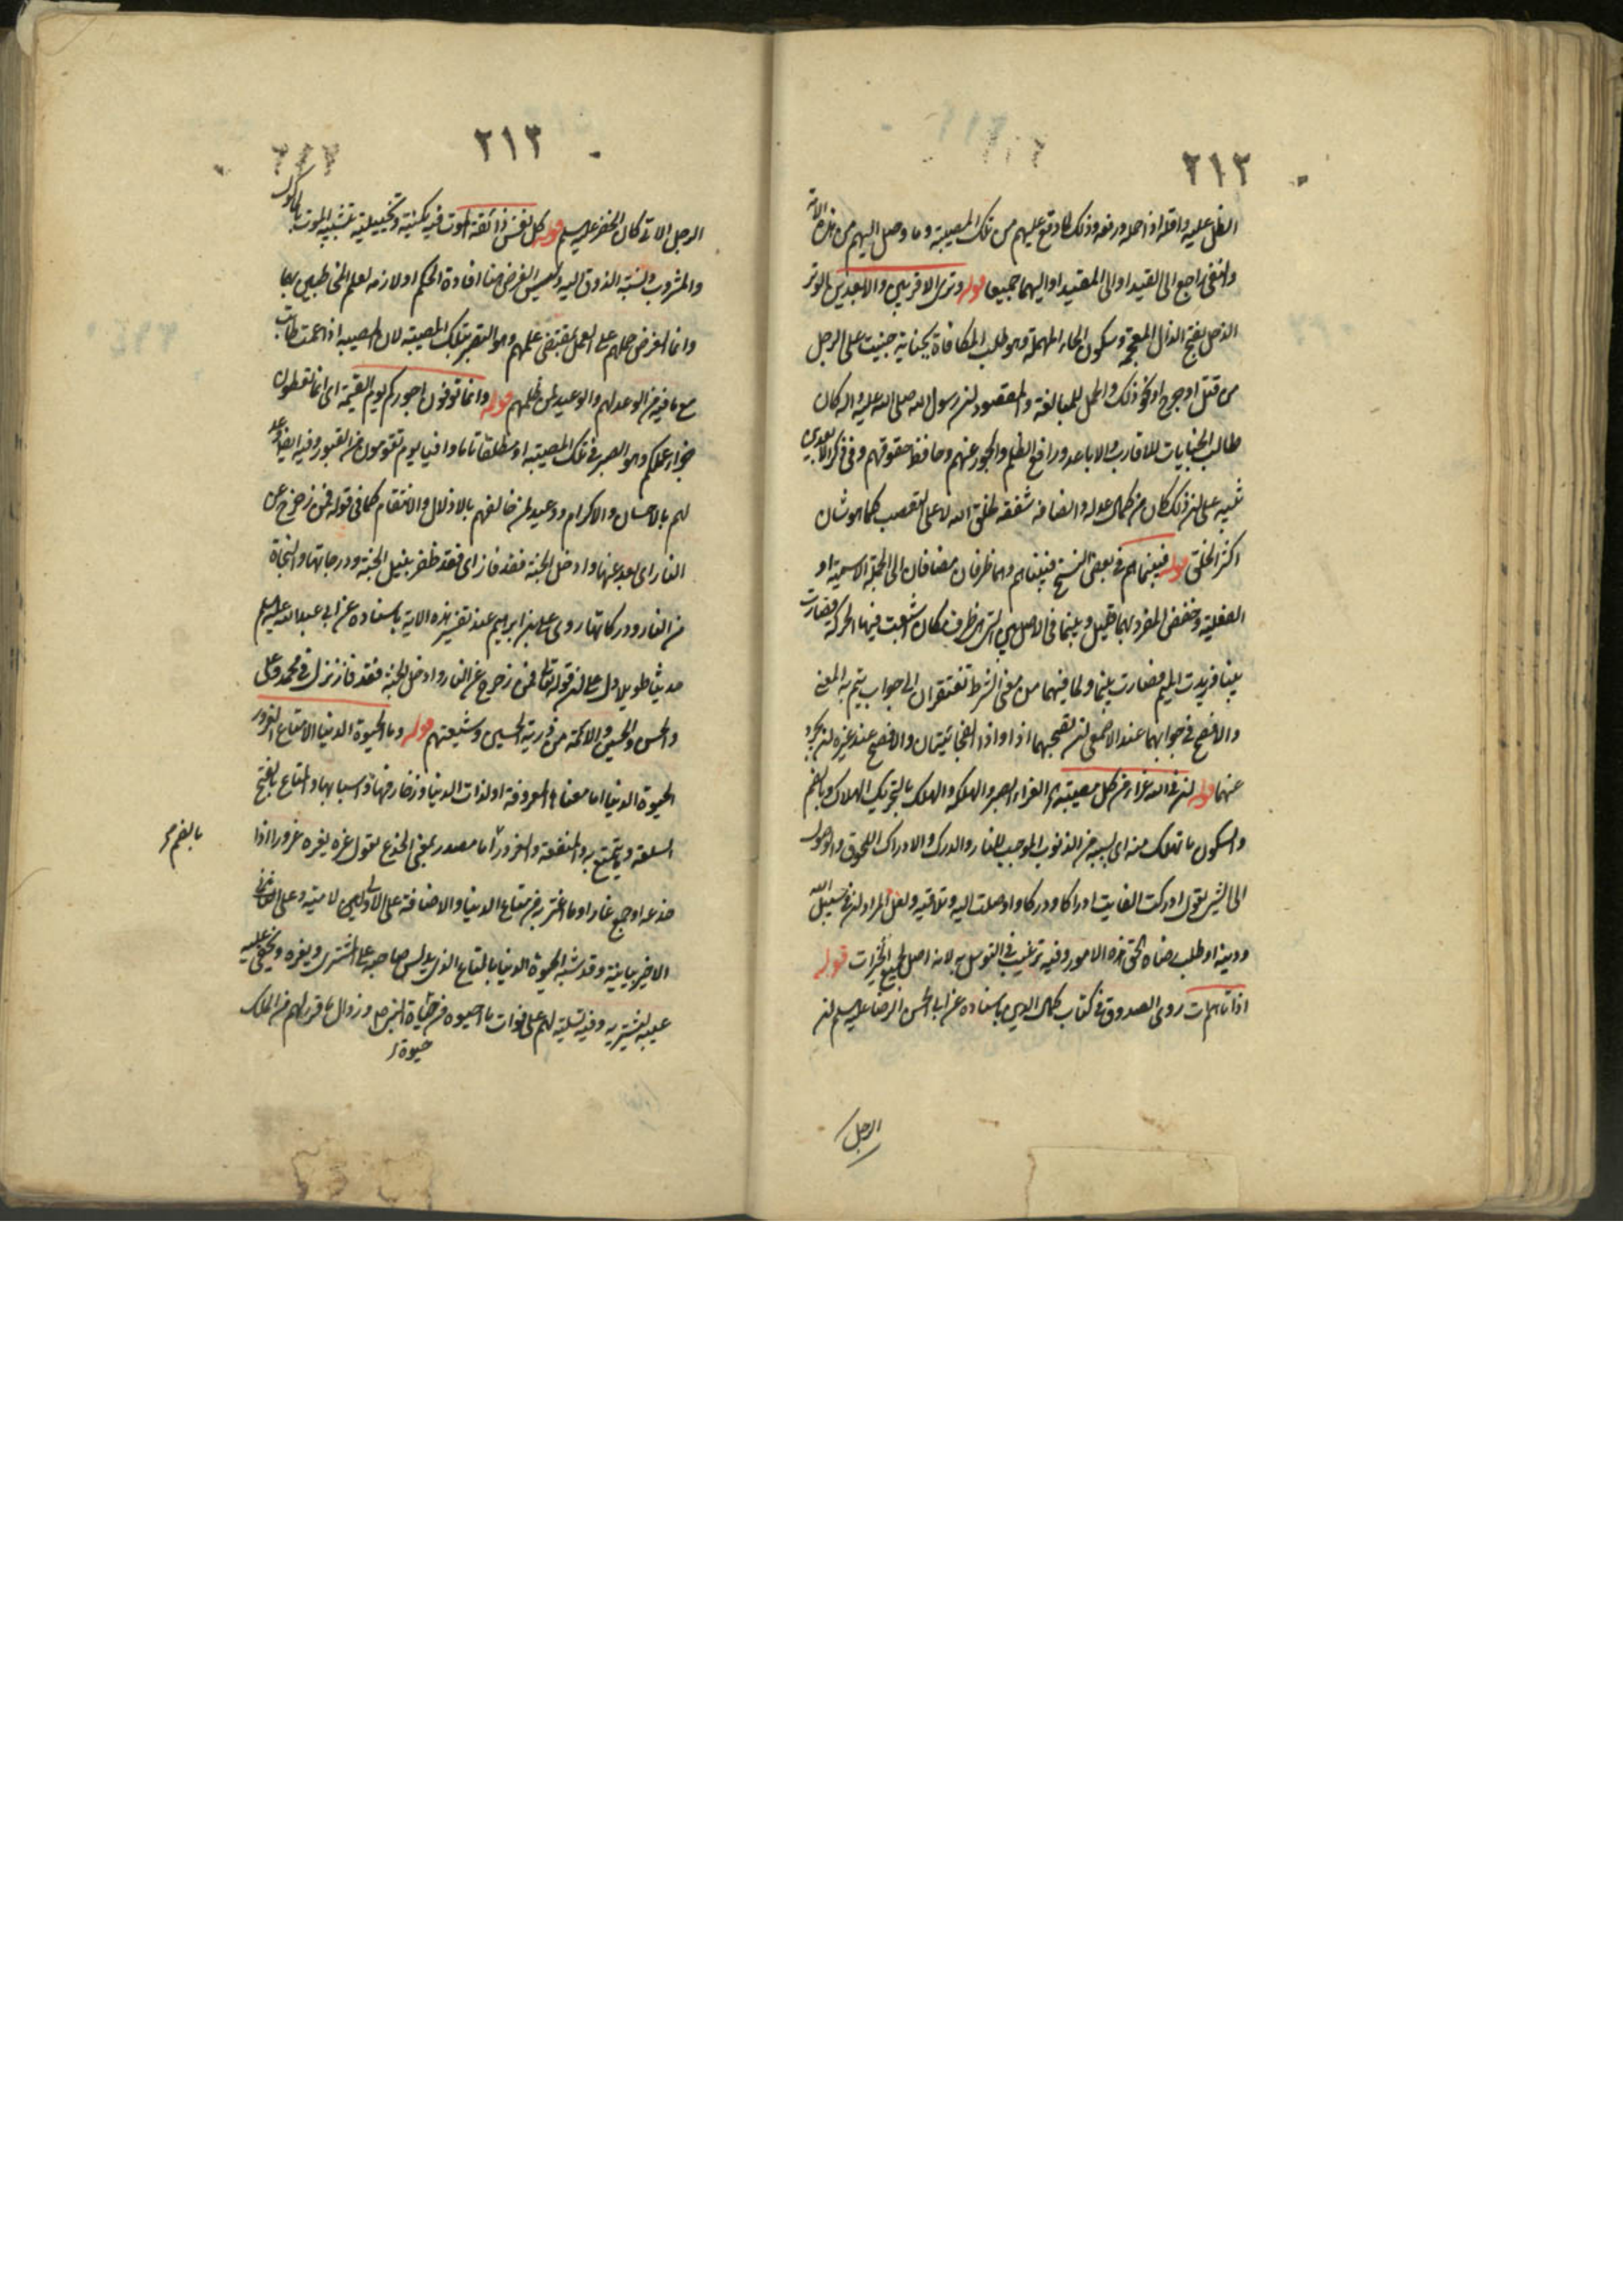 ٢١٢
الظل عليه واقله اذا حمله ورفعه وذلك لما وقع عليهم من تلك المصيبة وما وصل اليهم من هذه الامة
والنفى راجع الى القيد او الى المقيد او اليهما جميعا قوله وترى الاقربين والابعدين الوتر
الذحل بفتح الذال المعجمة وسكون الحاء المهملة وهو طلب المكافاة بجناية جنيت على الرجل
من قتل او جرح او نحو ذلك والحمل للمبالغة والمقصود ان رسول الله صلى الله عليه واله كان
طالب الجنايات للاقارب والاباعد ورافع الظلم والجور عنهم وحافظ حقوقهم وفى ذكر الابعدين
تنبيه على ان ذلك كان من كمال عدله وانصافه شفقة لخلق الله لا على التعصب كما هو شان
اكثر الخلق قوله فبينما هم فى بعض النسخ فبيناهم وهما ظرفان مضافان الى الجملة الاسمية او
الفعلية وخفض المفرد بهما قليل وبينما فى الاصل بين التى هى ظرف مكان اشبعت فيها الحركة فصارت
بينا فزيدت الميم فصارت بينما ولما فيهما من معنى الشرط تفتقران الى جواب يتم به المعنى
والافصح فى جوابهما عند الاصمعى ان تصحبهما اذ او اذا الفجائيتان والافصح عند غيره ان تجرد
عنهما قوله ان فى الله عزاء من كل مصيبة اه العزاء الصبر والهلكة والهلك بالتحريك الهلاك وبالضم
والسكون ما تهلك منه اى بسببه من الذنوب الموجب للنار والدرك والادراك اللحوق والوصول
الى الشىء تقول ادركت الغايت ادراكا ودركا واوصلت اليه وتلاقيته ولعل المراد ان فى سبيل الله
ودينه او طلب رضاه الحق هذه الامور وفيه ترغيب فى التوسل به لانه اصل لجميع الخيرات قوله
اذ اتاهم ات روى الصدوق فى كتاب كمال الدين باسناده عن ابى الحسن الرضا عليه السلم ان
الرجل
٢١٣
الرجل الاتى كان الخضر عليه السلم قوله كل نفس ذائقة الموت فيه مكنية وتخييلية بتشبيه الموت بالماكول
والمشروب ونسبة الذوق اليه وليس الغرض هنا افادة الحكم او لازمه لعلم المخاطبين بهما
وانما الغرض حملهم على العمل بمقتضى علمهم وهو التصبر بتلك المصيبة لان المصيبة اذا عمت طابت
مع ما فيه من الوعد لهم والوعيد لمن ظلمهم قوله وانما توفون اجوركم يوم القيمة اى انما تعطون
جزاء عملكم وهو الصبر فى تلك المصيبة او مطلقا تاما وافيا يوم تقومون من القبور وفيه ايضا وعد
لهم بالاحسان والاكرام ووعيد لمن خالفهم بالاذلال والانتقام كما فى قوله فمن زحزح عن
النار اى بعد عنها وادخل الجنة فقد فاز اى فقد ظفر بنيل الجنة ودرجاتها والنجاة
من النار ودركاتها روى على بن ابراهيم عند تفسير هذه الاية باسناده عن ابى عبد الله عليه السلم
حديثا طويلا دل على ان قوله تعالى فمن زحزح عن النار وادخل الجنة فقد فاز نزل فى محمد وعلى
والحسن والحسين والائمة من ذرية الحسين وشيعتهم قوله وما الحيوة الدنيا الا متاع الغرور
الحيوة الدنيا اما معناها المعروفة او لذات الدنيا وزخارفها واسبابها والمتاع بالفتح
السلعة وما يتمتع به والمنفعة والغرور اما مصدر بمعنى الخدع تقول غره يغره غرورا اذا
بالضم
خدعه او جمع غار او ما اغتر به من متاع الدنيا والاضافة على الاولين لامية وعلى
الاخير بيانية وقد شبه الحيوة الدنيا بالمتاع الذى يدلس صاحبه على المشترى ويغره ويخفى عليه
عيبه ليشتريه وفيه تسلية لهم على فوات ما احبوه من حياة النبى ص وزوال ما قرر لهم من الملك
حيوة